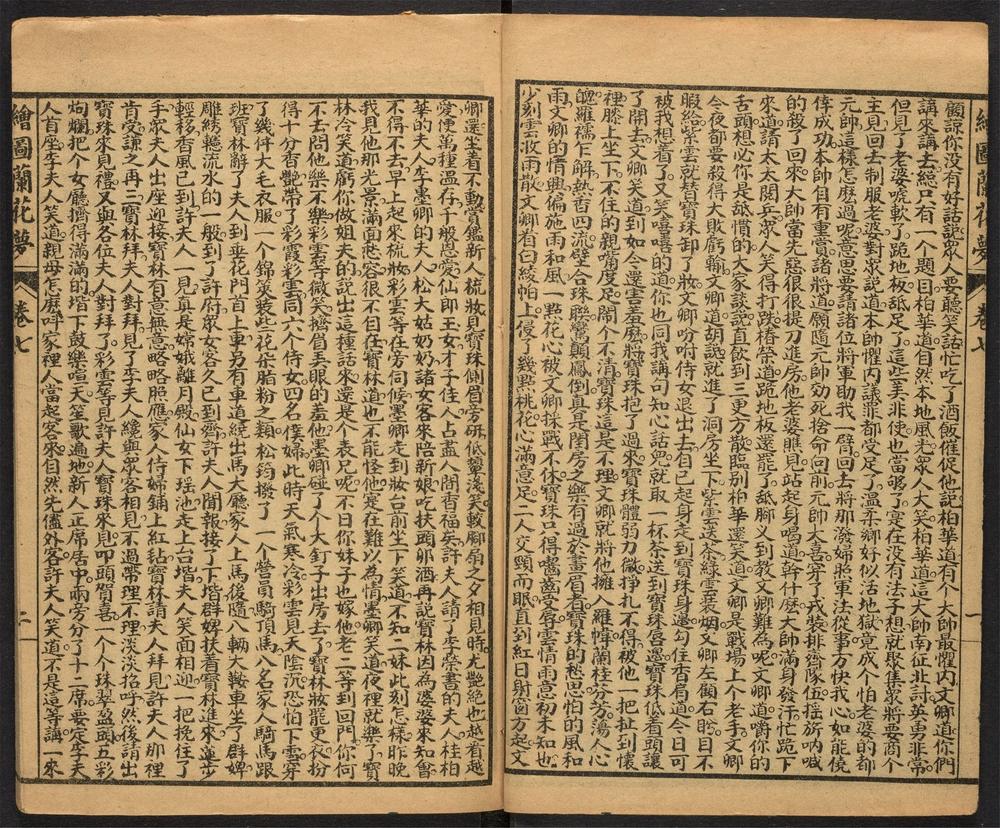 顧諒你没有好話說衆人要聽笑話忙吃了酒飯催促他說柏華道有个大帥最懼内文卿道你們
講來講去總只有一个題目柏華道自然本地風光衆人大笑柏華道這大帥南征北討英勇非常
但見了老婆唬軟了跪地板舐足了這些美非使也當够了寔在没有法子想就聚集衆將要商个
主見回去制服老婆對衆說道本帥懼内議罪都受足了溫柔鄉好似活地獄竟成个怕老婆的都
元帥這樣怎麼過呢意思要請諸位將軍助我一臂回去將那潑婦照軍法從事方快我心如能僥
倖成功本帥自有重賞諸將道願隨元帥効死捨命向前元帥大喜穿了戎裝排齊隊伍搖旂吶喊
的殺了回來大帥當先惡很很提刀進房他老婆瞧見站起身喝道幹什麽大帥滿身發汗忙跪下
來道請太太閱兵衆人笑得打跌椿榮道跪地板還罷了舐脚义到教文卿難為呢文卿道嚼你的
舌頭想必你是舐慣的大家談談說說直飲到三更方散臨别柏華還笑道文卿是戰場上个老手文卿
今夜都要殺得大敗虧輸文卿道胡說就進了洞房坐下紫雲送茶綠雲裝烟文卿左顧右盼目不
暇給紫雲就替寶珠卸了妝文卿吩咐侍女退出去自已起身走到寶珠身邊勾住香肩道今日可
被我想着了又笑嘻嘻的道你也同我講句知心話兒就取一杯茶送到寶珠唇邊寶珠低着頭讓
了開去文卿笑道到如今還害羞麽將寶珠抱了過來寶珠體弱力微掙扎不得被他一把扯到懷
裡膝上坐下不住的親嘴度足鬧个不清寶珠這是不理文卿就將他擁入羅幃蘭桂芬芳蕩人心
魄羅襦乍解熱香四流璧合珠聯鸞顛鳳倒真是閨房之樂有過於畫眉者寶珠的愁思怕的風和
雨文卿的情興偏施雨和風一點花心被文卿採戰不休寶珠只得嚙齒受辱雲情雨意初未知也
少刻雲收雨散文卿看白綾帕上侵了幾點桃花心滿意足二人交頸而眠直到紅日射窗方起文
卿還坐着不動賞鑑新人梳妝見寶珠側眉旁硏低鬟淺笑較腳扇之夕相見時尤艷絶也越看越
愛便萬種溫存千般恩愛仙郎玉女才子佳人占盡人間香福矣許夫人請了李榮書的夫人桂柏
華的夫人李墨卿的夫人松大姑奶奶諸女客來陪新娘吃扶頭卯酒再說寶林因為婆婆來知會
不得不去早上起來梳妝彩雲等在旁伺候墨卿走到妝台前坐下笑道不知二妹此刻怎樣昨晚
我見他那光景滿面愁容很不自在寶林道也不能怪他寔在難以為情墨卿笑道夜裡就樂了寶
林冷笑道虧你做姐夫的說出這種話來還是个表兄呢不日你妹子也嫁他老二等到回門你何
不去問他樂不樂彩雲等微笑擔眉丟眼的羞他墨卿碰了个大釘子出房去了寶林妝罷更衣扮
得十分香艷帶了彩霞彩雲同六个侍女四名僕婦此時天氣寒冷彩雲見天陰沉恐怕下雪穿
了幾件大毛衣服一个錦篋裝些花朶脂粉之類松筠撥了一个營員騎頂馬八名家人騎馬跟
班寶林辭了夫人到垂花門首上車另有車道繞出馬大廳家人上馬後隨八輛大鞍車坐了群婢
雕綉轣流水的一般到了許府衆女客久已到齊許夫人聞報接了下堦群婢扶着寶林進來蓮步
輕移香風已到許夫人一見真是嫦娥離月殿仙女下瑤池走上台堦夫人笑面相迎一把挽住了
手衆夫人出座迎接寶林有意無意畧畧照應家人侍婦鋪上紅毡寶林請夫人拜見許夫人那裡
肯受謙之再三寶林拜夫人對拜見了李夫人纔與衆客相見不過帶理不理淡淡招呼然後請出
寶珠來見禮又與各位夫人對拜了彩雲等見許夫人寶珠來見叩頭賀喜一个个珠翠盈頭五彩
炯爛把个女廳擠得滿滿的堦下鼓樂喧天笙歌遍地新人正席居中兩旁分了十二席要定李夫
人首座李夫人笑道親母怎麼呼家裡人當起客來自然先儘外客許夫人笑道不是這等講一來
繪圖蘭花夢
卷七
二